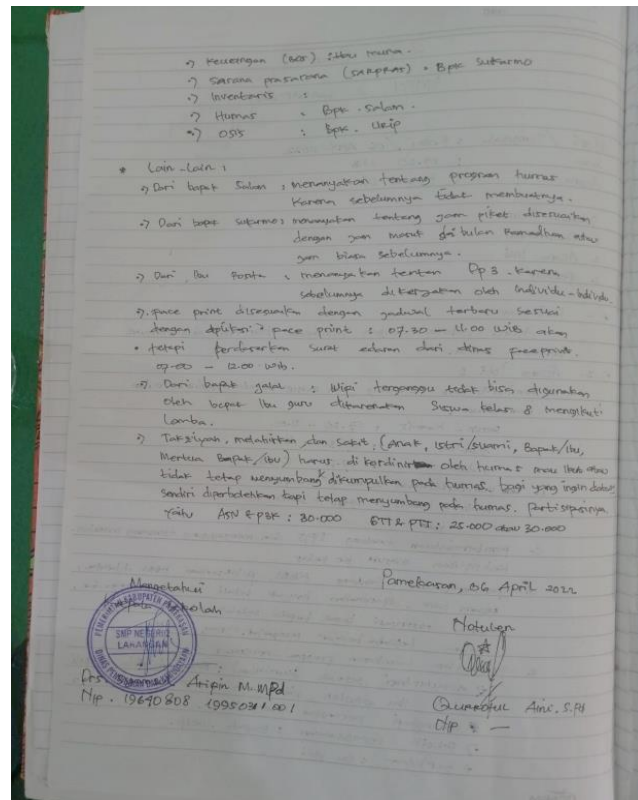 -) Keuangan (BOS) : Ibu
-) Sarana prasarana (SARPRAS) : Bpk Sukarmo
-) Inventaris :
-) Humas : Bpk. Salam.
-) OSIS : Bpk. Urip
• Lain-Lain :
-) Dari bapak Salam : menanyakan tentang program humas
karena sebelumnya tidak membuatnya.
-) Dari bapak sukarmo : menanyakan tentang jam piket disesuaikan
dengan jam masuk di bulan Ramadhan atau
jam biasa sebelumnya.
-) Dari Ibu Rosita : menanyakan tentan Pp 3. karena
sebelumnya dikerjakan oleh individu-individu.
-) pace print disesuaikan dengan jadwal terbaru sesuai
dengan aplikasi. pace print : 07.30 – 11.00 WIB akan
• tetapi berdasarkan surat edaran dari dinas paceprint.
07-00 – 12.00 wib.
-) Dari bapak galal : Wipi terganggu tidak bisa digunakan
oleh bapak Ibu guru dikarenakan Siswa kelas 8 mengikuti
Lomba.
-) Takziyah, melahirkan dan sakit. (Anak, Istri/Suami, Bapak/Ibu,
Mertua Bapak/Ibu) harus di kordinir oleh humas mau atau
tidak tetap menyumbang dikumpulkan pada humas. bagi yang ingin
sendiri diperbolehkan tapi tetap menyumbang pada humas. Partisipasinya
Yaitu ASN & P3K : 30.000 GTT & PTT : 25.000 atau 30.000
Pamekasan, 06 April 2022
Mengetahui
Kepala Sekolah
Notulen
PEMERINTAH KABUPATEN PAMEKASAN
SMP NEGERI 2
LARANGAN
DINAS PENDIDIKAN DAN KEBUDAYAAN
Drs. Aripin M. MPd
Nip. 19640808 199503 1 001
Qurrotul Aini, S.Pd
Nip : —